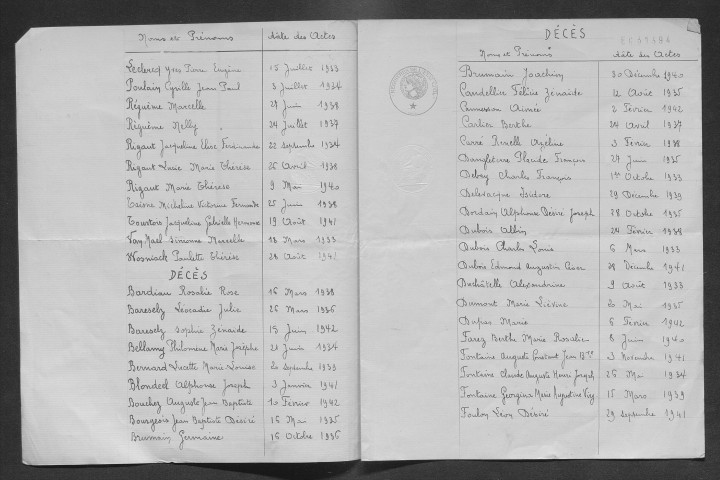 Noms et Prénoms Date des Actes
Leclercq Yves Pierre Eugène 15 Juillet 1933
Poulain Cyrille Jean Paul 3 Juillet 1934
Réguème Marcelle 29 Juin 1938
Réguème Nelly 24 Juillet 1937
Rigaut Jacqueline Elise Fernande 22 Septembre 1934
Rigaut Marie Thérèse 26 Avril 1938
Rigaut Marie Thérèse 9 Mai 1940
Taisne Micheline Victorine Fernande 25 Juin 1938
Tourtois Jacqueline Gabrielle Hermance 19 Août 1941
Simonne Marcelle 18 Mars 1933
Wosniack Paulette Thérèse 28 Août 1941
DÉCÈS
Bardiau Rosalie Rose 16 Mars 1938
Baresely Léocadie Julie 26 Mars 1936
Baresely Sophie Zénaïde 15 Juin 1942
Bellamy Philomène Marie Josèphe 21 Juin 1934
Bernard Lucette Marie Louise 20 Septembre 1933
Blondeel Alphonse Joseph 3 Janvier 1941
Bouchez Auguste Jean Baptiste 10 Février 1942
Bourgeois Jean Baptiste Désiré 16 Mai 1935
Brumain Germaine 16 Octobre 1936
DÉCÈS
Noms et Prénoms Date des Actes
Brumain Joachim 30 Décembre 1940
Caudellier Félicie Zénaïde 12 Août 1935
Aimée 2 Février 1942
Cartier Berthe 24 Avril 1937
Carré Azéline 3 Février 1938
Dangleterre Placide François 29 Juin 1935
Debay Charles François 1er Octobre 1933
Delevacque Isidore 29 Décembre 1939
Dordain Alphonse Désiré Joseph 28 Octobre 1935
Dubois Albin 24 Février 1938
Dubois Charles Louis 6 Mars 1933
Dubois Edmond Augustin 28 Décembre 1941
Duchâtelle Alexandrine 9 Août 1933
Dumont Marie 20 Mai 1935
Dupas Marie 6 Février 1942
Farez Berthe Marie Rosalie 8 Juin 1940
Fontaine Auguste Constant Jean Bte 3 Novembre 1941
Fontaine Claude Auguste Henri Joseph 26 Mai 1934
Fontaine Georgina Marie Augustine 15 Mars 1939
Foulon Léon Désiré 29 Septembre 1941